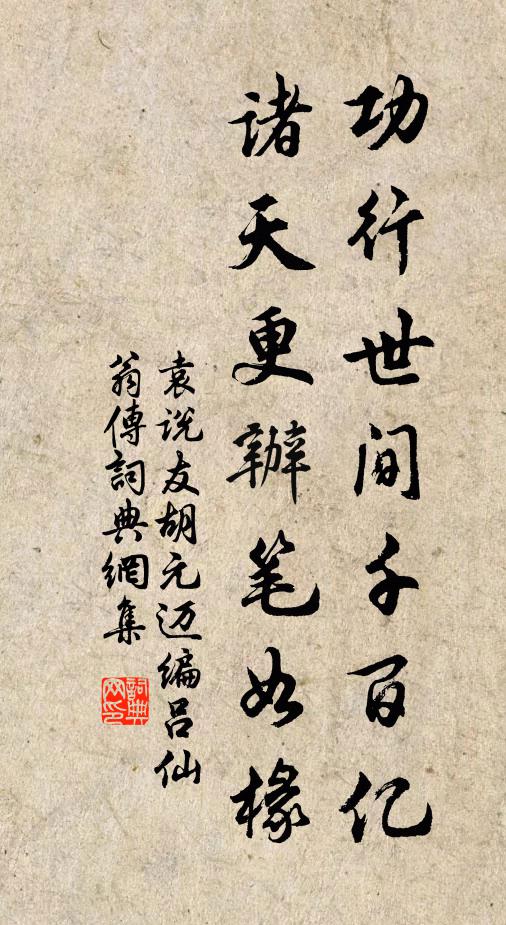 功行世间千百亿
诸天更辦笔如椽
袁说友胡元迈编吕仙
翁傳詞典網集
詞典网印